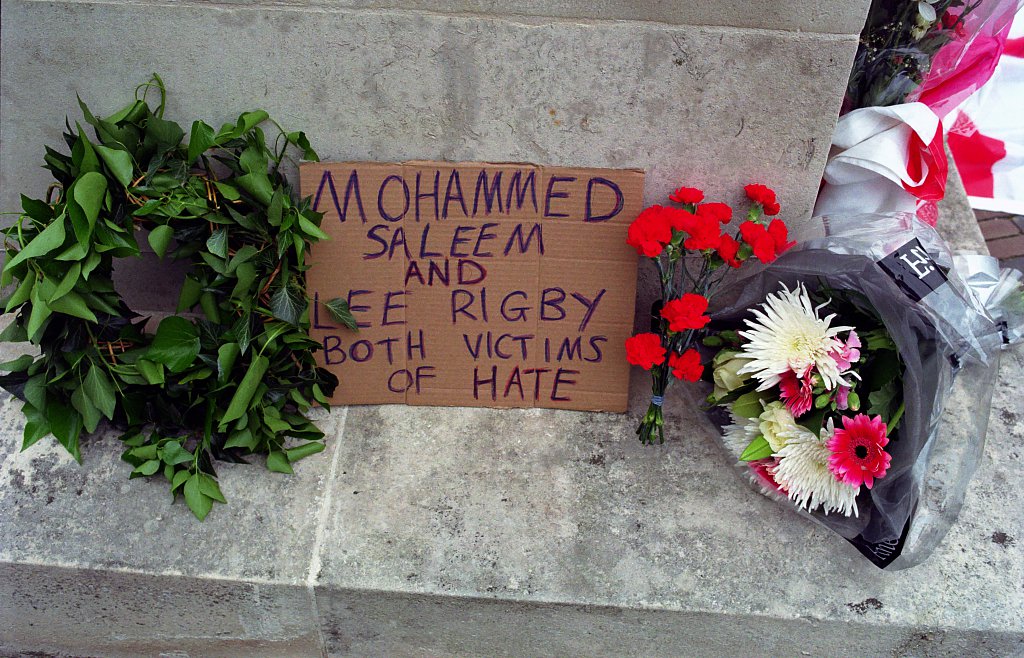 MOHAMMED
SALEEM
AND
LEE RIGBY
BOTH VICTIMS
OF HATE